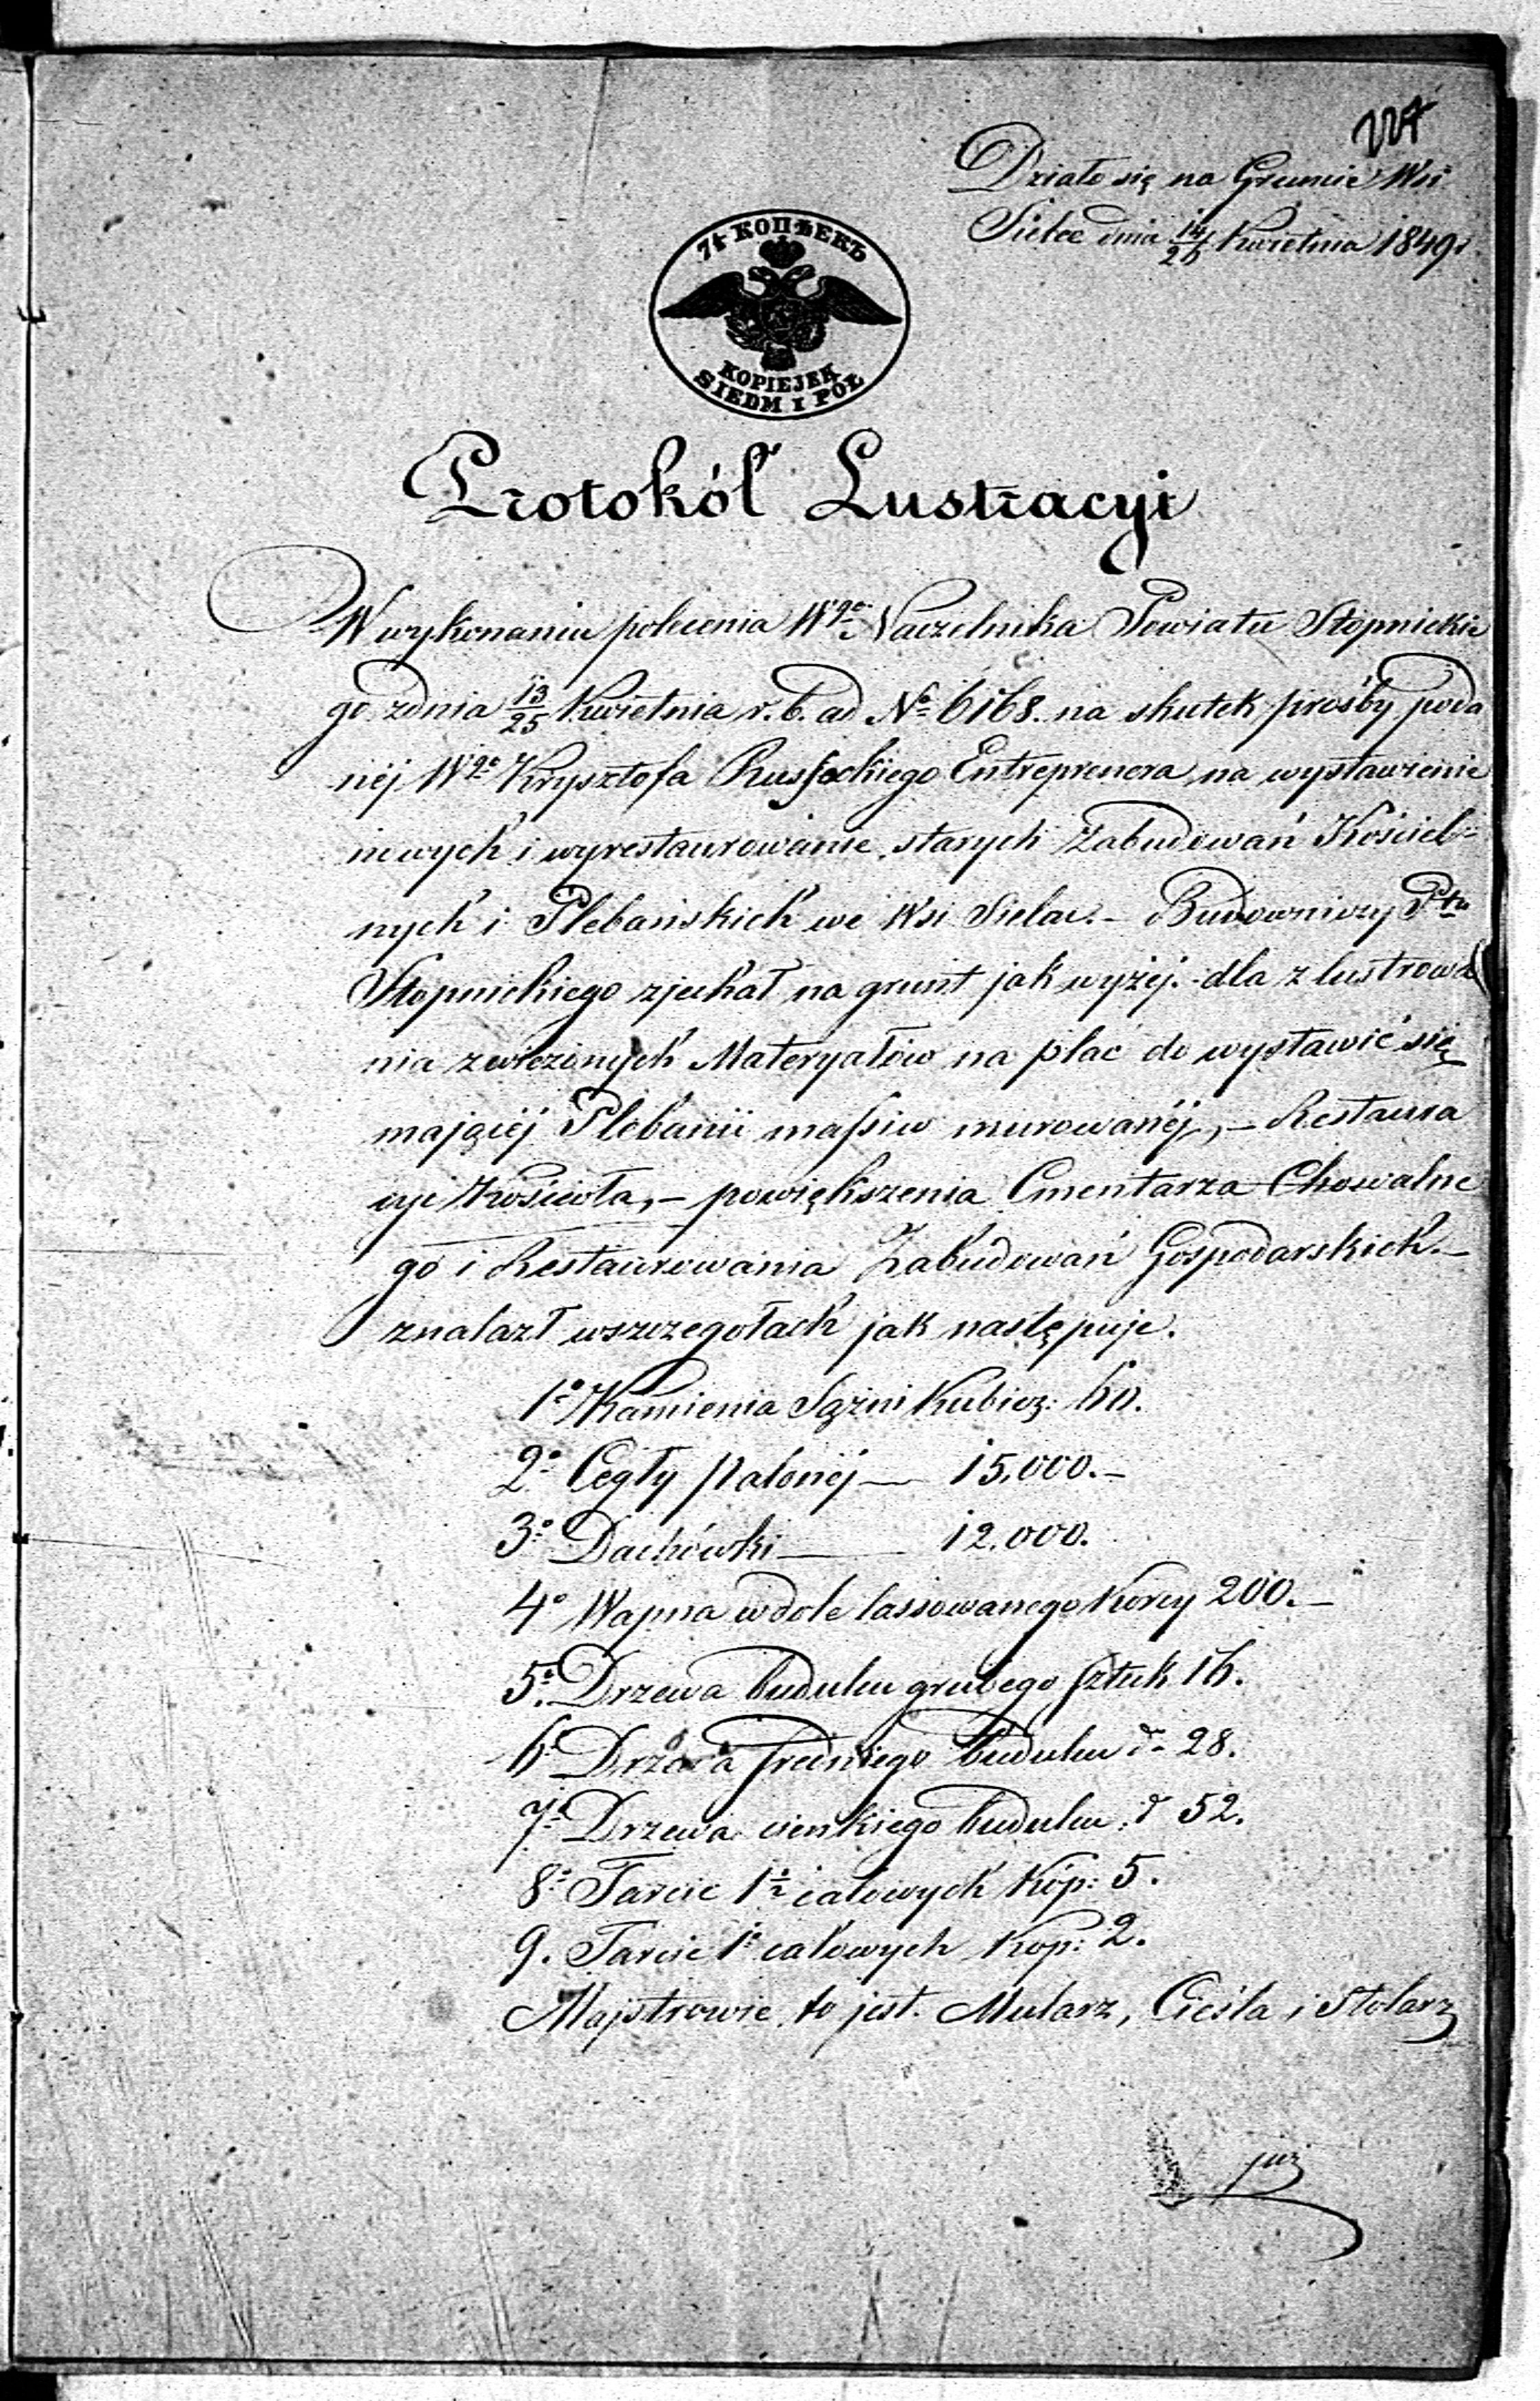 227
Działo się na Gruncie Wsi
Sielec dnia 14/26 Kwietnia 1849 r
7½ КОПѢЕКЪ
KOPIEJEK
SIEDM I PÓŁ
Protokół Lustracyi
W wykonaniu polecenia Wgo Naczelnika Powiatu Stopnickie
go z dnia 13/25 Kwietnia r. b. ad No 6168. na skutek prośby poda
néj Wgo Krysztofa Russockiego Entreprenera na wystawienie
nowych i wyrestaurowanie starych Zabudowań Kościel-
nych i Plebańskich we Wsi Sielcu. - Budowniczy Ptu
Stopnickiego zjechał na grunt jak wyżéj. dla zlustrowa
nia zwiezionych Materyałów na plac do wystawić się
mającéj Plebanii massiw murowanéj, - Restaura
cyi Kościoła, - powiększenia Cmentarza Chowalne
go i Restaurowania Zabudowań Gospodarskich. -
znalazł w szczegołach jak następuje.
1o Kamienia Sążni Kubicz: 60.
2o Cegły palonéj — 15,000. -
3o Dachówki — 12.000.
4o Wapna w dole lassowanego Korcy 200. -
5o Drzewa budulcu grubego sztuk 16.
6o Drzewa średniego budulcu do 28.
7o Drzewa cienkiego budulcu do 52.
8o Tarcic 1½ calowych Kóp: 5.
9. Tarcic 1o calowych Kop: 2.
Majstrowie, to jest. Mularz, Cieśla i Stolarz
już